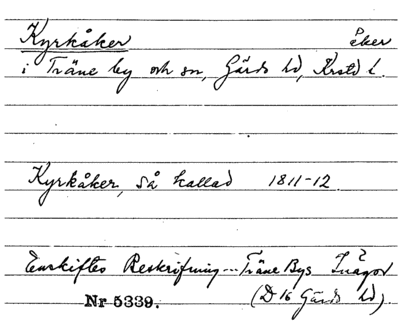 Kyrkåker åker
i Träne by och sn, Gärds hd, Krstd l.
Kyrkåker, så kallad 1811-12
Enskiftes Beskrifning --- Träne Bys Inägor
Nr 5339. (D 16 Gärds hd)